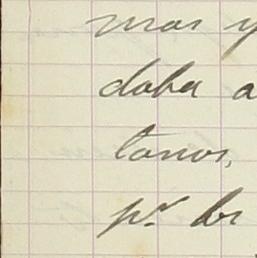 mas y
daba a
tanos,
pr. br